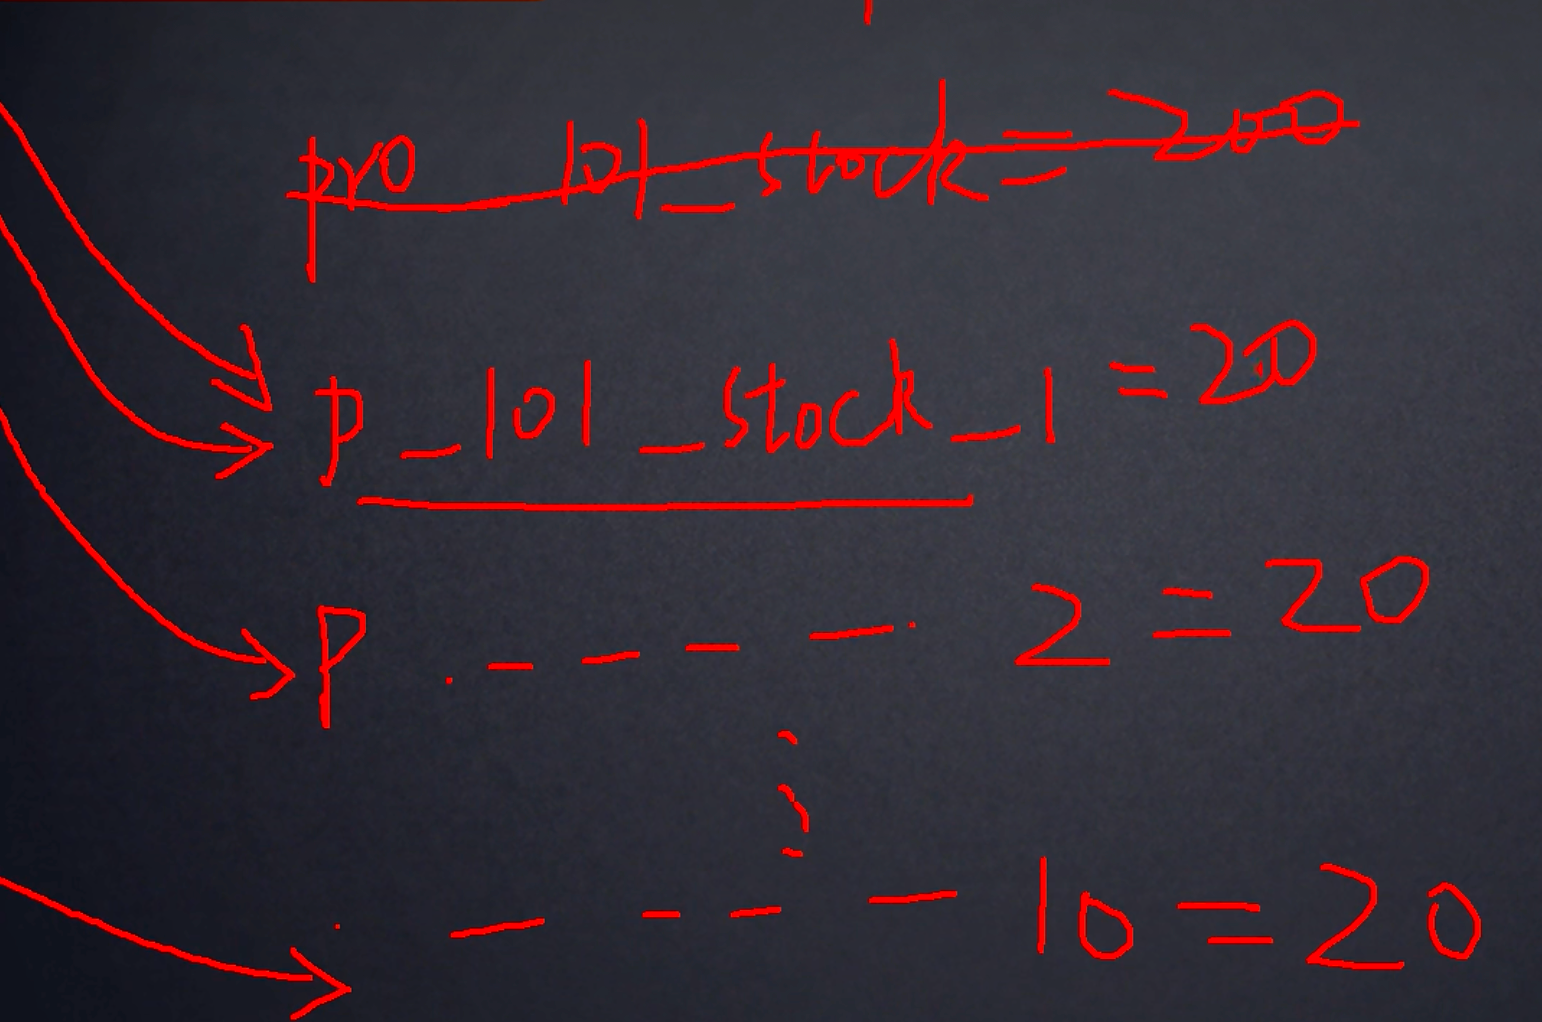 pro 101_stock=200
p_101_stock_1 = 20
p 2 = 20
10 = 20